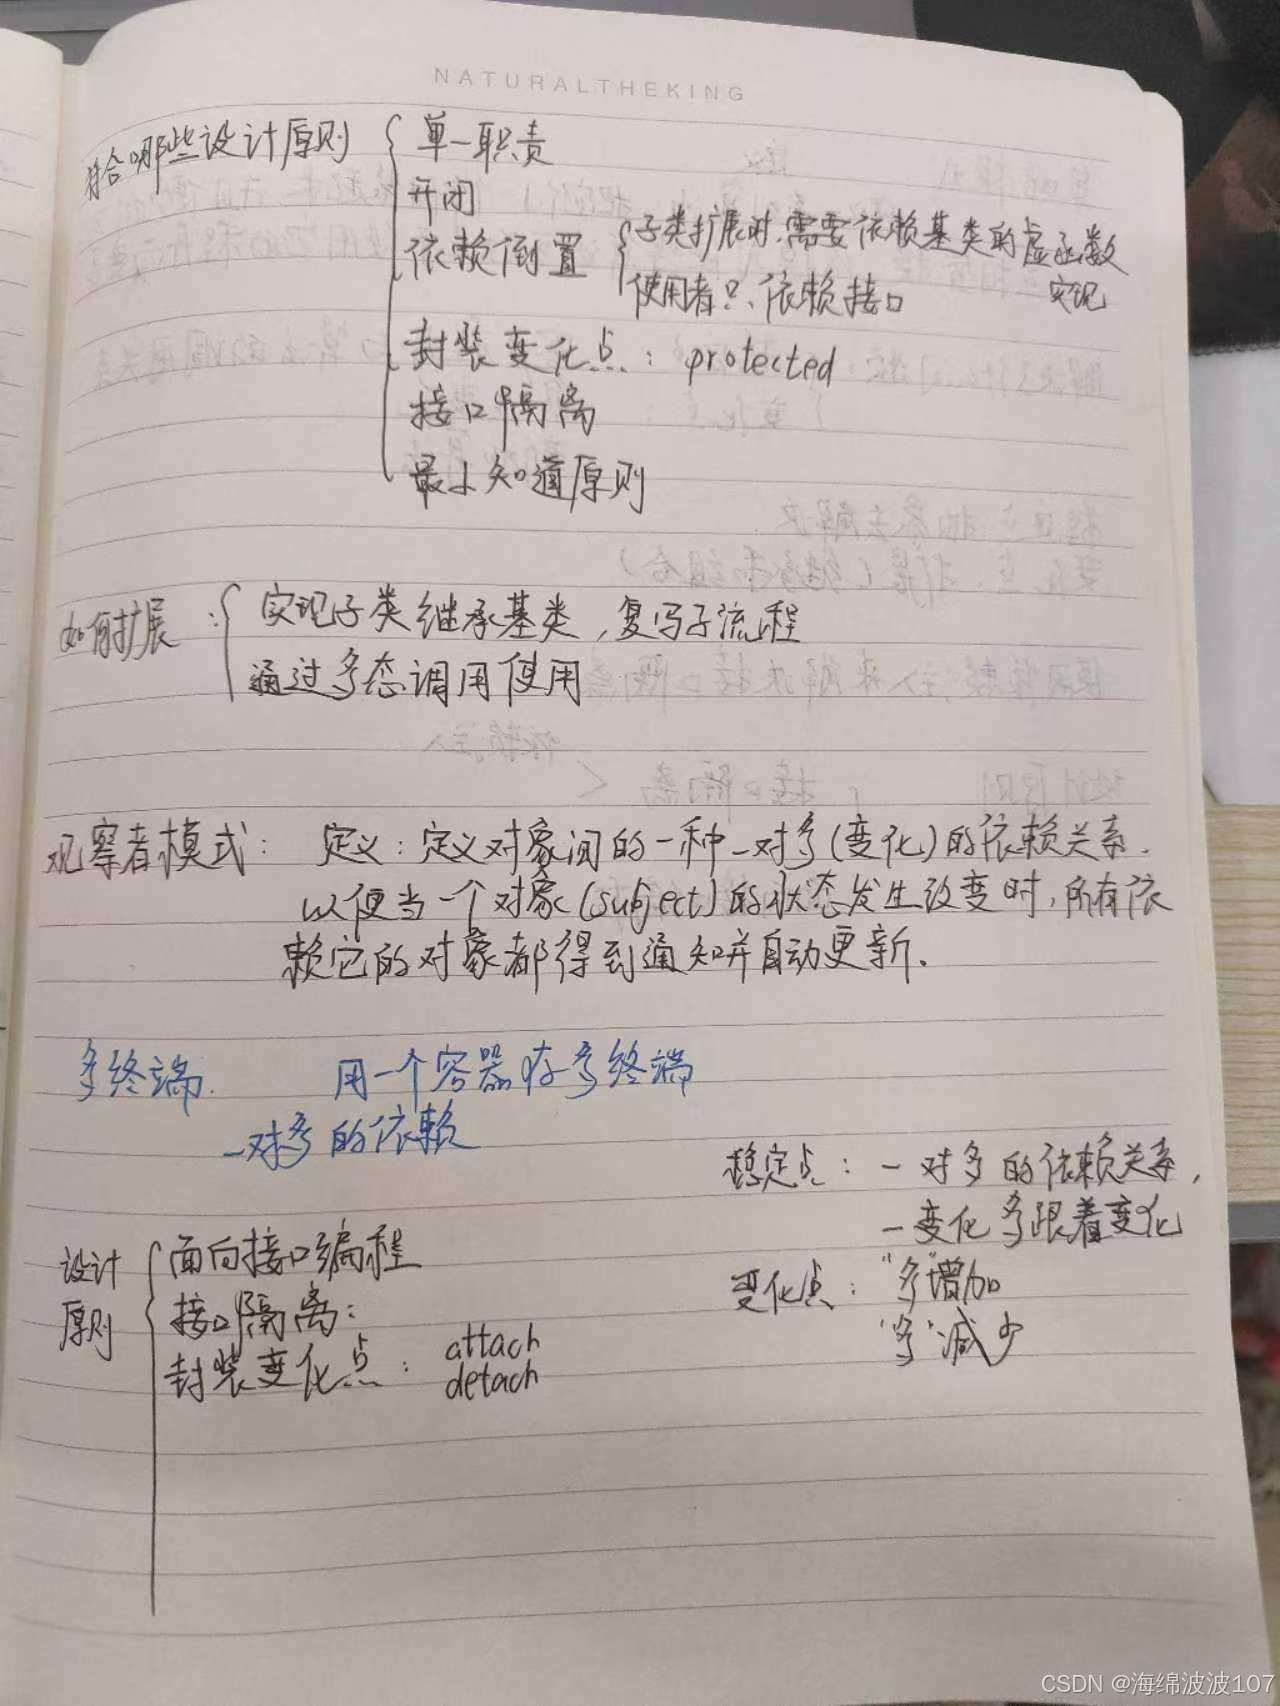 NATURALTHEKING
符合哪些设计原则
单一职责
开闭
依赖倒置
子类扩展时,需要依赖基类的虚函数
实现
使用者只依赖接口
封装变化点: protected
接口隔离
最小知道原则
如何扩展:
实现子类继承基类,复写子流程
通过多态调用使用
观察者模式: 定义:定义对象间的一种一对多(变化)的依赖关系.
以便当一个对象(subject)的状态发生改变时,所有依
赖它的对象都得到通知并自动更新.
多终端. 用一个容器存多终端
一对多的依赖
稳定点: 一对多的依赖关系,
一变化多跟着变化
变化点: "多"增加
"多"减少
设计
原则
面向接口编程
接口隔离:
封装变化点: attach
detach
CSDN @海绵波波107